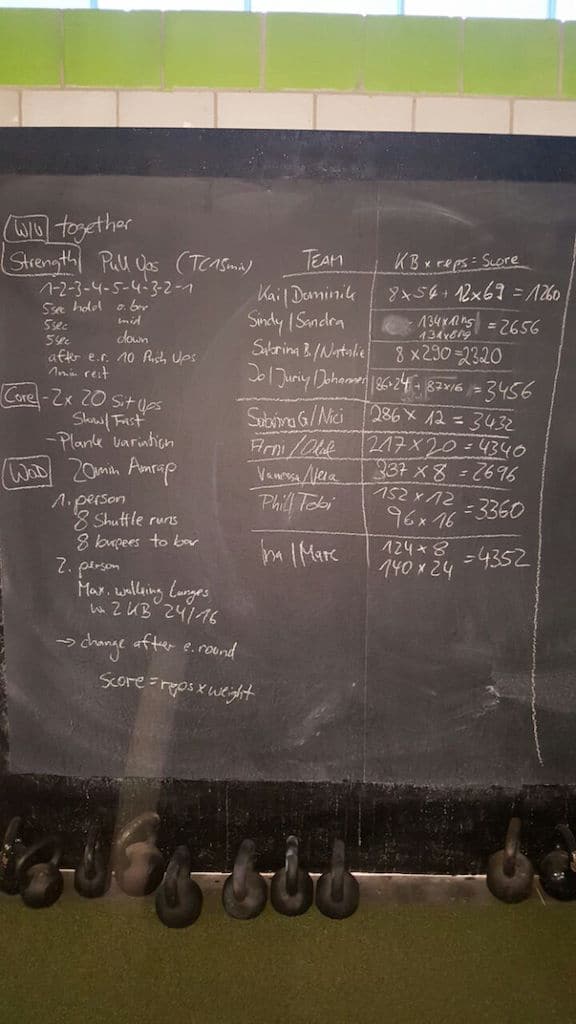 W/U together
Strength Pull Ups (TC 15min)
1-2-3-4-5-4-3-2-1
5sec hold o. bar
5sec mid
5sec down
after e.r. 10 Push Ups
1min rest
Core - 2x 20 Sit Ups
Slow/Fast
- Plank variation
WOD 20min Amrap
1. person
8 Shuttle runs
8 burpees to bar
2. person
Max. walking lunges
w 2 KB 24/16
→ change after e. round
Score = reps x weight
TEAM KB x reps = Score
Kai/Dominik 8x54 + 12x69 = 1260
Sindy/Sandra 134x12kg = 2656
131x8kg
Sabrina B./Natalie 8x290 = 2320
Jo/Juriy/Johannes 86x24 + 87x16 = 3456
Sabrina G/Nici 286 x 12 = 3432
Arni/Olaf 217 x 20 = 4340
Vanessa/Vera 337 x 8 = 2696
Phil/Tobi 152 x 12
96 x 16 = 3360
Ina/Marc 124 x 8
140 x 24 = 4352